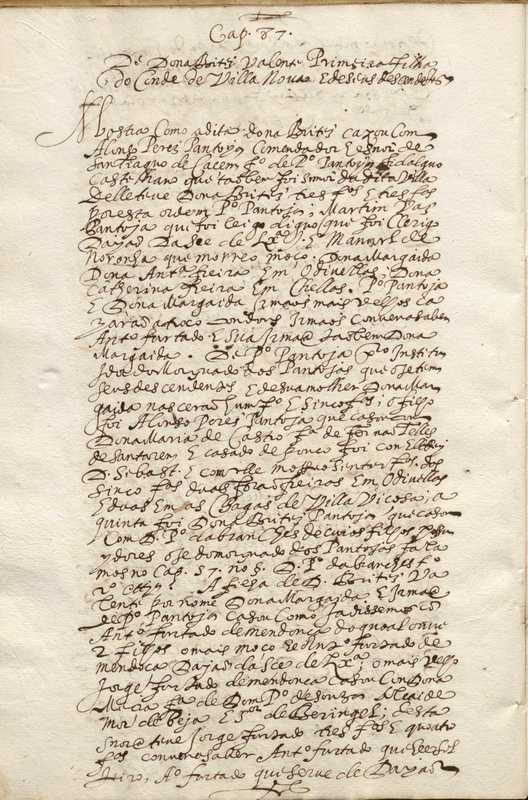 Cap. 87.
De Dona Britis Valente Primeira filha
do Conde de Villa Nova E de seus desendentes
Mostra Como a dita dona Britis cazou Com
Alonso Perez Pantoja Comendador E snor de
Santiaguo de Cacem fo de Po Pantoja fidalguo
Castelhano que tãober foi snor da dita Villa
Delle teve Dona Britis tres fos E tres fas
por esta ordem Po Pantoja, Martim Vas
Pantoja qui foi leigo diguo qui foi Clerigo
Dayaõ Da See de Lxa E Manoel de
Noronha que morreo moço. Dona Margaida
Dona Anta freira Em Odivellas, Dona
Catherina freira Em Chellas. Po Pantoja
E Dona Margaida Irmaos mais velhos ca
zaraõ a troco Com dous Irmaos Convem a saber
Anto furtado E Sua Irmaã tãobem Dona
Margaida. De Po Pantoja pro Institui
dor do Morguado dos Pantojas que oje tem
seus desendentes E de sua molher Dona Mar
gaida nasceraõ hum fo E sinco fas; o filho
foi Alonso Pores Pantoja que casou com
Dona Maria de Castro fa de fernaõ Telles
de Santarem E casado de pouco foi com El Rey
D. Sebast. E com elle morreo sem ter fos. das
sinco fas duas foraõ freiras Em Odivellas
E duas Em as Chagas de Villa Vicosa; a
quinta foi Dona Britis Pantoja que casou
Com D. Po da branches de cuios filhos possu
ydores oje do morguado dos Pantojas fala
mos no Cap. 57. no 5. D. Po da branches fo
A filha de D. Britis Va
lente por nome Dona Margaida E Irmaã
de Po Pantoja Casou Como ja dissemos com
Anto furtado de mendonca do qual ouve
2 filhos o mais moço foi Anto furtado de
mendoca Dayaõ da See de Lxa, o mais velho
Jorge furtado de mendonca casou Com Dona
Mecia fa de Dom Po de Souza Alcaide
mor de beja E snor de Beringel; desta
snora teve Jorge furtado tres fos E quatro
fas convem a saber Anto furtado que he sol
teiro, Ao furtado que serve de Dayaõ